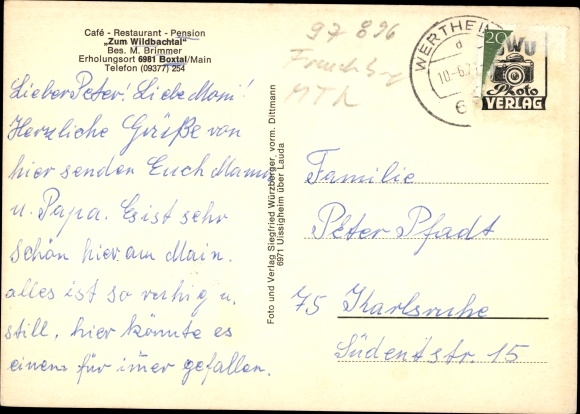 Café - Restaurant - Pension
„Zum Wildbachtal"
Bes. M. Brimmer
Erholungsort 6981 Boxtal/Main
Telefon (09377) 254
97 896
MTK
WERTHEIM
10.-6.7
6
20
WU
Photo
VERLAG
Lieber Peter! Liebe Moni!
Herzliche Grüße von
hier senden Euch Mama
u. Papa. Es ist sehr
schön hier am Main.
alles ist so ruhig u.
still, hier könnte es
einem für im̄er gefallen.
Foto und Verlag Siegfried Würzberger, vorm. Dittmann
6971 Uissigheim über Lauda
Familie
Peter Pfadt
75 Karlsruhe
Südendstr. 15